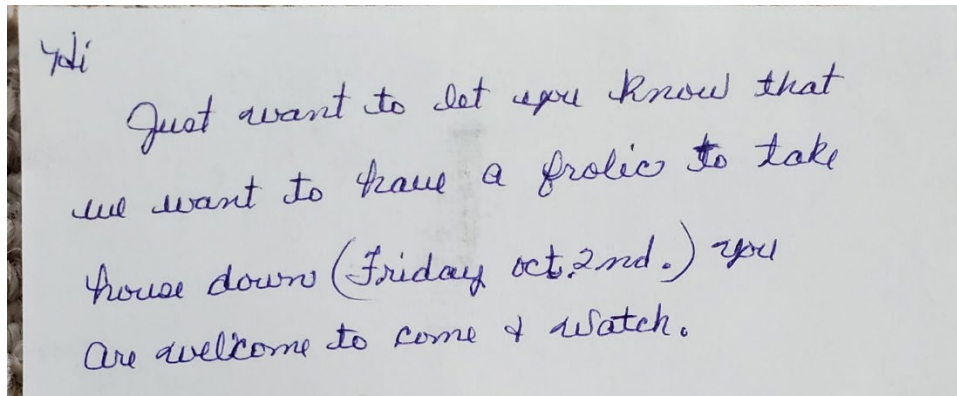 Hi
Just want to let you know that
we want to have a frolic to take
house down (Friday oct. 2nd.) you
are welcome to come & watch.